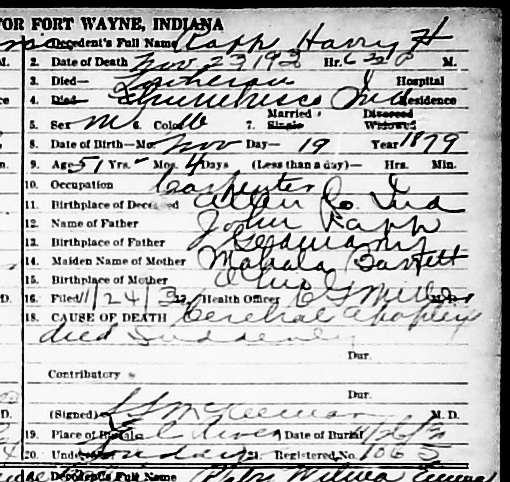 FOR FORT WAYNE, INDIANA
Decedent's Full Name Rapp Harry H
M. 2. Date of Death Nov 23 193 Hr. 6 30 P M.
3. Died— Lutheran Hospital
4. Died— Ind Residence
5. Sex M 6. Color W 7. Married Single Divorced Widowed
8. Date of Birth—Mo. Nov Day— 19 Year 1879
9. Age 51 Yrs. Mos. 4 Days (Less than a day)— Hrs. Min.
10. Occupation Carpenter
11. Birthplace of Deceased Allen Co. Ind
12. Name of Father John Rapp
13. Birthplace of Father Germany
14. Maiden Name of Mother Mahala Barrett
15. Birthplace of Mother Ohio
D. 16. Filed 11/24/3 17. Health Officer M.D.
18. CAUSE OF DEATH Cerebral Apoplexy
died Suddenly
Dur.
Contributory
Dur.
D. (Signed) M. D.
19. Place of Burial Date of Burial 11/26/3
20. Undertaker 21. Registered No. 1063
Decedent's Full Name Wilma